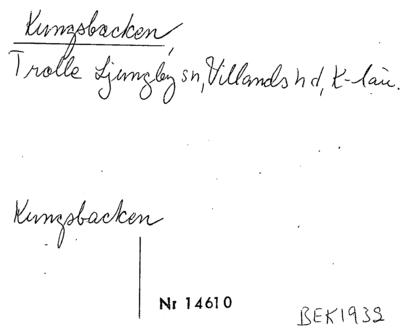 Kungsbacken
Trolle Ljungby sn, Villands hd, K-län.
Kungsbacken
Nr 14610
BEK1932